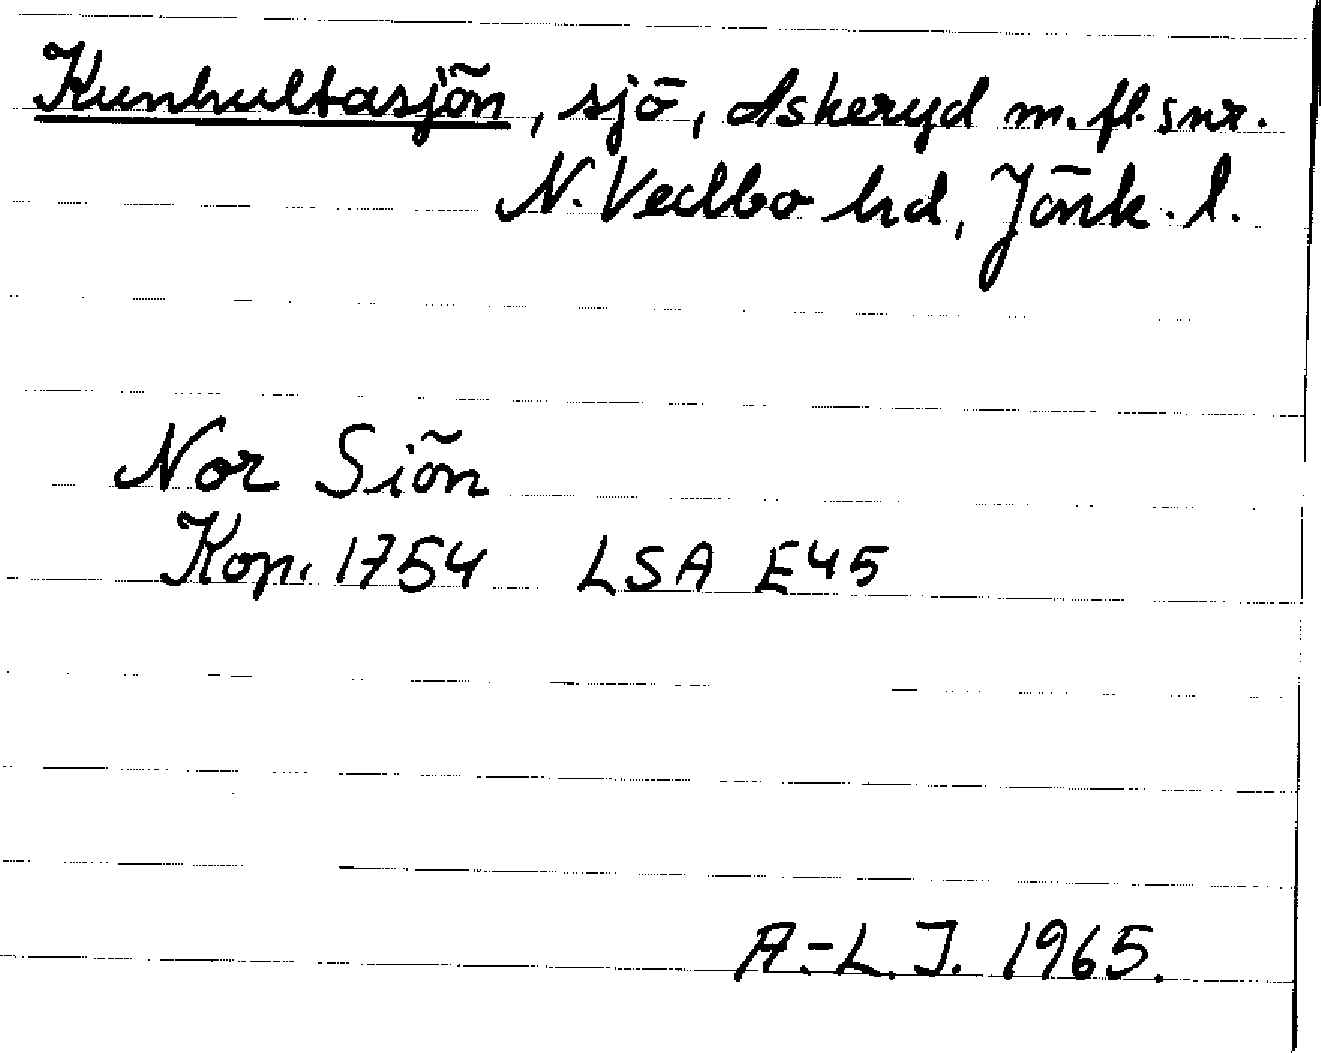 Kunhultasjön, sjö, Askeryd m.fl. snr.
N. Vedbo hd, Jönk. l.
Nor Siön
Kop. 1754 LSA E45
A.-L. J. 1965.